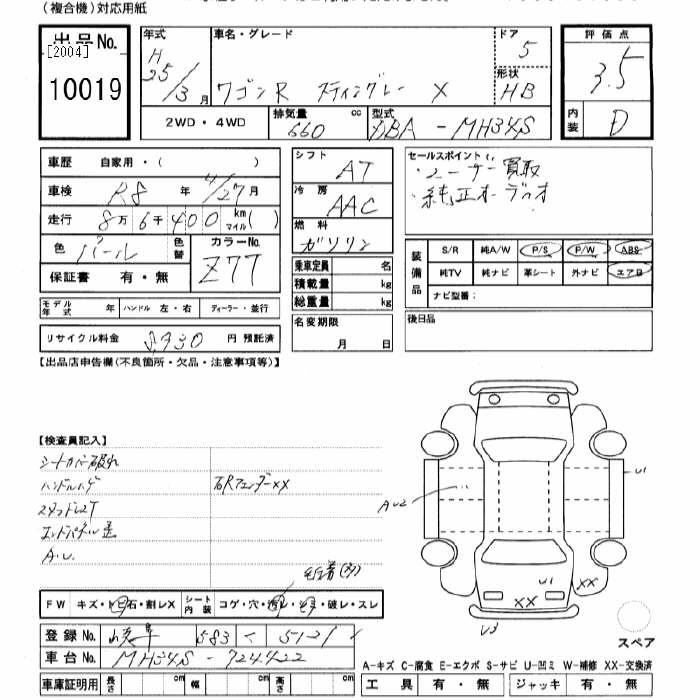 (複合機)対応用紙
出品No.
[2004]
10019
年式 H 25/3月
車名・グレード ワゴンR スティングレー X
ドア 5
形状 HB
評価点 3.5
内装 D
2WD・4WD
排気量 660 cc
型式 DBA - MH34S
車歴 自家用・( )
車検 R8年 4/27月
走行 8万6千400 km マイル( )
色 パール 色替
カラーNo. Z7T
保証書 有・無
シフト AT
冷房 AAC
燃料 ガソリン
乗車定員 名
積載量 kg
総重量 kg
セールスポイント
・ユーザー買取
・純正オーディオ
装備品
S/R 純A/W P/S P/W ABS
純TV 純ナビ 革シート 外ナビ エアB
ナビ型番:
モデル年式 年 ハンドル 左・右 ディーラー・並行
名変期限 月 日
後日品
リサイクル料金 8,930 円 預託済
【出品店申告欄(不良箇所・欠品・注意事項等)】
【検査員記入】
シートカバー破れ
ハンドルハゲ
石Rフェンダー××
スタッドレスT
エンドパネル歪
A.U.
U1
AU2
U1
××
××
U3
FW キズ・トビ石・割レX シート内装 コゲ・穴・汚レ・シミ・破レ・スレ
登録No. 岐阜 583 く 5121
車台No. MH34S - 724422
スペア
A-キズ C-腐食 E-エクボ S-サビ U-凹ミ W-補修 XX-交換済
車庫証明用 長さ cm 幅 cm 高さ cm
工具 有・無 ジャッキ 有・無